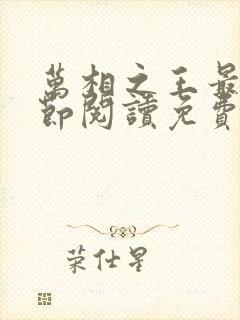 萬相之王最
節閱讀免費
荣仕星